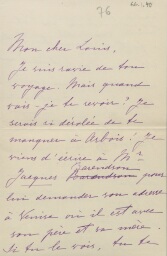 76
Mon cher Louis,
Je suis ravie de ton
voyage. Mais quand
vais-je te revoir? Je
serais si désolée de te
manquer à Arbois! Je
viens d'écrire à Mr
Jacques
lui demander son adresse
à Venise où il est avec
son père et sa mère.
Si tu le vois, tu te